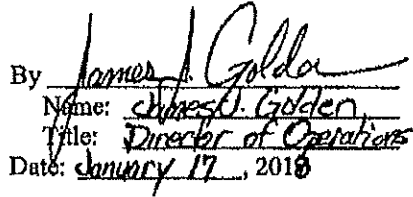 By James J. Golden
Name: James J. Golden
Title: Director of Operations
Date: January 17, 2018